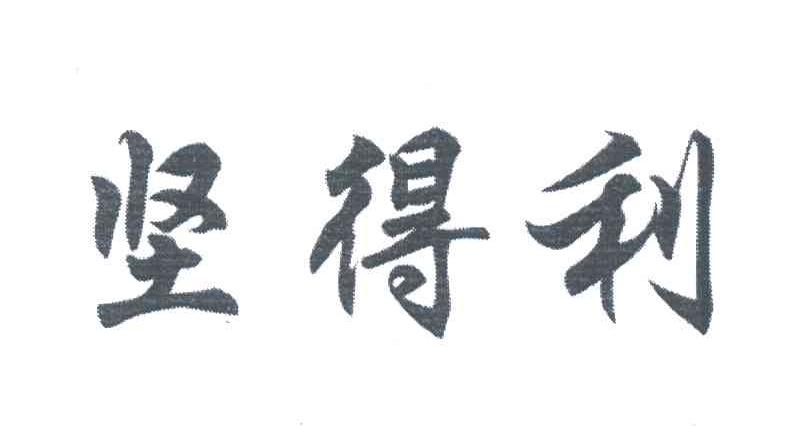 坚得利